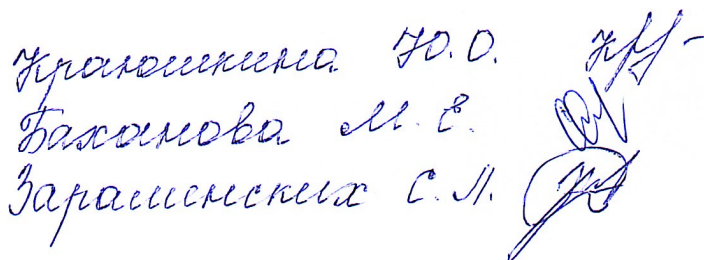 Краюшкина Ю.О.
Баханова М.Е.
Зараменских С.Л.